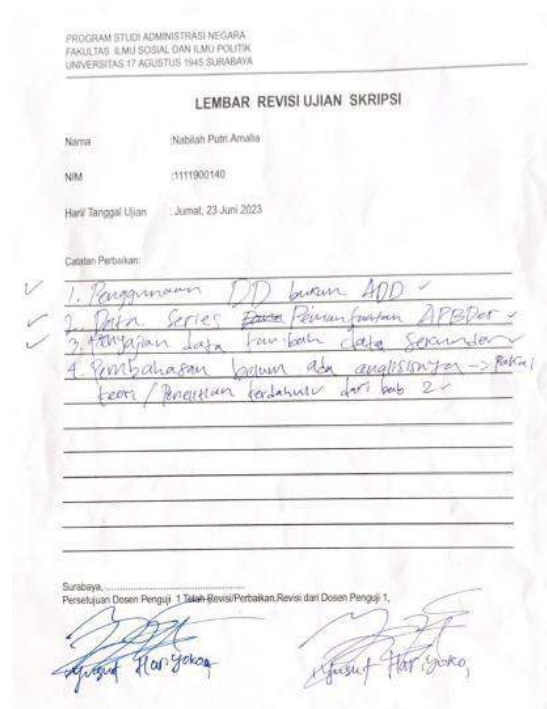 PROGRAM STUDI ADMINISTRASI NEGARA
FAKULTAS ILMU SOSIAL DAN ILMU POLITIK
UNIVERSITAS 17 AGUSTUS 1945 SURABAYA
LEMBAR REVISI UJIAN SKRIPSI
Nama :Nabilah Putri Amalia
NIM :1111900140
Hari/ Tanggal Ujian : Jumat, 23 Juni 2023
Catatan Perbaikan:
1. Penggunaan DD bukan ADD
2. Data Series Pemanfaatan APBDes
3. Penyajian data tambah data Sekunder
4. Pembahasan belum ada analisisnya -> Pakai
teori / Penelitian terdahulu dari bab 2
Surabaya, ..........................................
Persetujuan Dosen Penguji 1 Telah Revisi/Perbaikan,Revisi dari Dosen Penguji 1,
Yusuf Hariyoko, Yusuf Hariyoko,